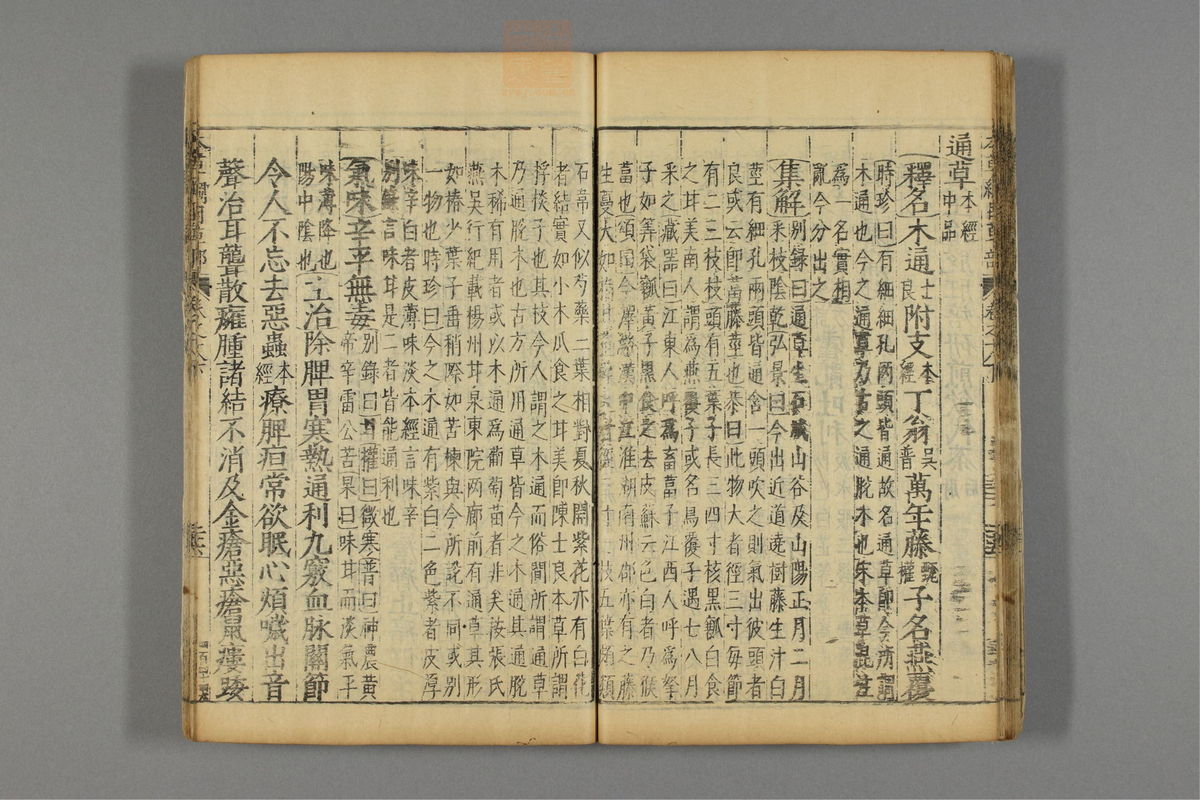 通草 本經中品
釋名 木通士良 附支本經 丁翁吳普 萬年藤甄權 子名燕覆
時珍曰有細細孔兩頭皆通故名通草即今所謂
木通也今之通草乃古之通脫木也宋本草混註
爲一名實相
亂今分出之
集解 別錄曰通草生石城山谷及山陽正月二月
采枝陰乾弘景曰今出近道遶樹藤生汁白
莖有細孔兩頭皆通含一頭吹之則氣出彼頭者
良或云即葍藤莖也恭曰此物大者徑三寸每節
有二三枝枝頭有五葉子長三四寸核黑瓤白食
之甘美南人謂爲燕覆子或名烏覆子遇七八月
采之藏器曰江東人呼爲畜葍子江西人呼爲拏
子如筭袋瓤黃子黑食之去皮蘇云色白者乃猴
葍也頌曰今澤潞漢中江淮湖南州郡亦有之藤
生蔓大如指其莖幹大者徑三寸一枝五葉頗類
石韋又似芍藥二葉相對夏秋開紫花亦有白花
者結實如小木瓜食之甘美即陳士良本草所謂
桴棪子也其枝今人謂之木通而俗間所謂通草
乃通脫木也古方所用通草皆今之木通其通脫
木稀有用者或以木通爲葡萄苗者非矣按張氏
燕吳行紀載楊州甘泉東院兩廊前有通草其形
如椿少葉子垂稍際如苦楝與今所說不同或別
一物也時珍曰今之木通有紫白二色紫者皮厚
味辛白者皮薄味淡本經言味辛
別錄言味甘是二者皆能通利也
氣味 辛平無毒 別錄曰甘權曰微寒普曰神農黃
帝辛雷公苦杲曰味甘而淡氣平
味薄降也
陽中陰也 主治 除脾胃寒熱通利九竅血脉關節
令人不忘去惡蟲本經療脾疸常欲眠心煩噦出音
聲治耳聾散癰腫諸結不消及金瘡惡瘡鼠瘻踒